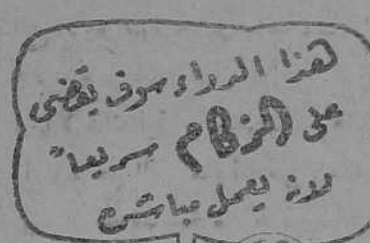 هذا الدواء سوف يقضى
على الزكام سريعاً
لانه يعمل مباشرة